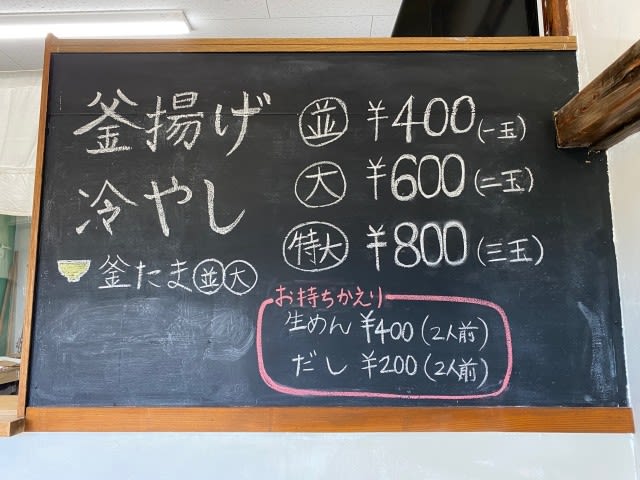 釜揚げ
冷やし
釜たま 並 大
並 ¥400 (一玉)
大 ¥600 (二玉)
特大 ¥800 (三玉)
お持ちかえり
生めん ¥400 (2人前)
だし ¥200 (2人前)